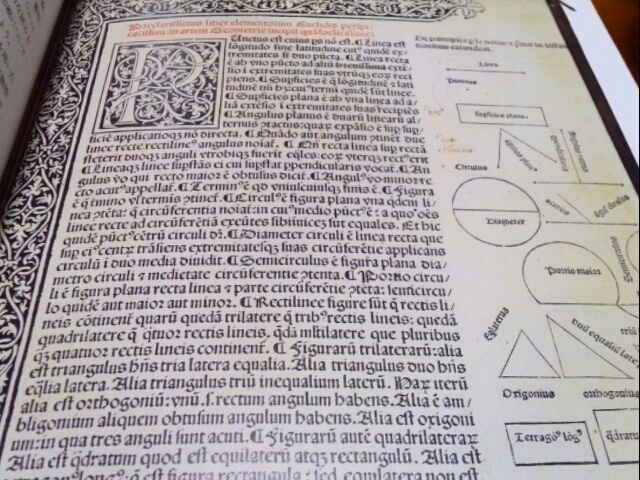 Preclarissimus liber elementorum Euclidis perspi/
cacissimi: in artem Geometrie incipit quãfoelicissime:
Punctus est cuius ps nõ est. ¶ Linea est
lõgitudo sine latitudine cuiꝰ quidẽ ex/
tremitates sũt duo pũcta. ¶ Linea recta
ẽ ab vno pũcto ad aliũ breuissima extẽ/
sio i extremitates suas vtrũqꝫ eoꝝ reci
piens. ¶ Supficies ẽ q̃ lõgitudinẽ ⁊ lati
tudinẽ tm̃ hꝫ: cuiꝰ termi quidẽ sũt linee.
¶ Supficies plana ẽ ab vna linea ad a/
liã extẽsio i extremitates suas recipiẽs
¶ Angulus planus ẽ duarũ linearũ al/
ternus ꝯtactus: quaꝝ expãsio ẽ sup sup/
ficiẽ applicatioqꝫ nõ directa. ¶ Quãdo aut angulum ꝯtinẽt due
linee recte rectilineꝰ angulus noiaĩ. ¶ Qñ recta linea sup rectã
steterit duoqꝫ anguli vtrobiqꝫ fuerit eq̃les: eoꝝ vterqꝫ rectꝰ erit
¶ Lineaqꝫ linee supstãs ei cui supstat ppendicularis vocaĩ. ¶ An
gulus vo qui recto maior ẽ obtusus diciĩ. ¶ Angulꝰ vo minor re
cto acutꝰ appellaĩ. ¶ Terminꝰ ẽ qd vniuscuiusqꝫ finis ẽ. ¶ Figura
ẽ q̃ tmino vl terminis ꝯtineĩ. ¶ Circulꝰ ẽ figura plana vna qdem li/
nea ꝯtẽta: q̃ circũferentia noiaĩ: in cuiꝰ medio pũctꝰ ẽ: a quo oẽs
linee recte ad circũferẽtiã exeũtes sibiinuicẽ sut equales. Et hic
quidẽ pũctꝰ cẽtrũ circuli dr. ¶ Diameter circuli ẽ linea recta que
sup eiꝰ centꝝ trãsiens extremitatesqꝫ suas circũferẽtie applicans
circulũ i duo media diuidit. ¶ Semicirculus ẽ figura plana dia/
metro circuli ⁊ medietate circũferentie ꝯtenta. ¶ Portio circu/
li ẽ figura plana recta linea ⁊ parte circũferẽtie ꝯtẽta: semicircu/
lo quidẽ aut maior aut minor. ¶ Rectilinee figure sũt q̃ rectis li/
neis cõtinent quarũ quedã trilatere q̃ tribꝰ rectis lineis: quedã
quadrilatere q̃ q̃tuor rectis lineis. qdã mltilatere que pluribus
qꝫ quatuor rectis lineis continent. ¶ Figurarũ trilaterarũ: alia
est triangulus hñs tria latera equalia. Alia triangulus duo hñs
eq̃lia latera. Alia triangulus triũ inequalium laterũ. Haꝝ iterũ
alia est orthogoniũ: vnũ .s. rectum angulum habens. Alia ẽ am/
bligonium aliquem obtusum angulum habens. Alia est oxigoni
um: in qua tres anguli sunt acuti. ¶ Figurarũ autẽ quadrilateraꝝ
Alia est q̃dratum quod est equilaterũ atqꝫ rectangulũ. Alia est
tetragonꝰ longꝰ: q̃ est figura rectangula: sed equilatera non est.
Linea
Punctus
Supficies plana.
Circulus
Diameter
Portio maior
Oxigonius
orthogonius
Tetragõꝰ lõgꝰ